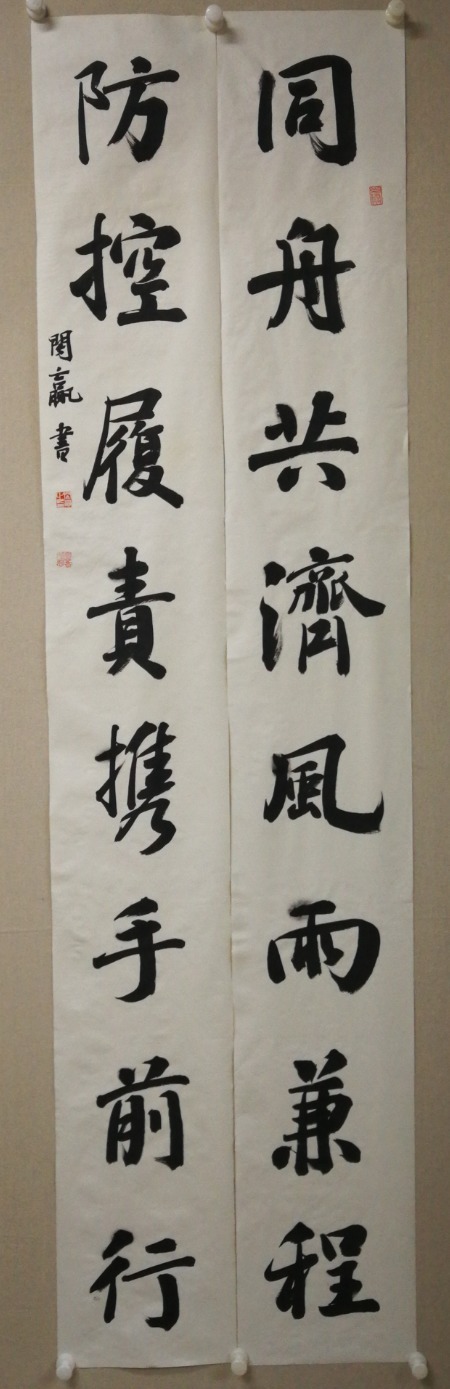 同舟共濟風雨兼程
防控履責携手前行
閔贏書